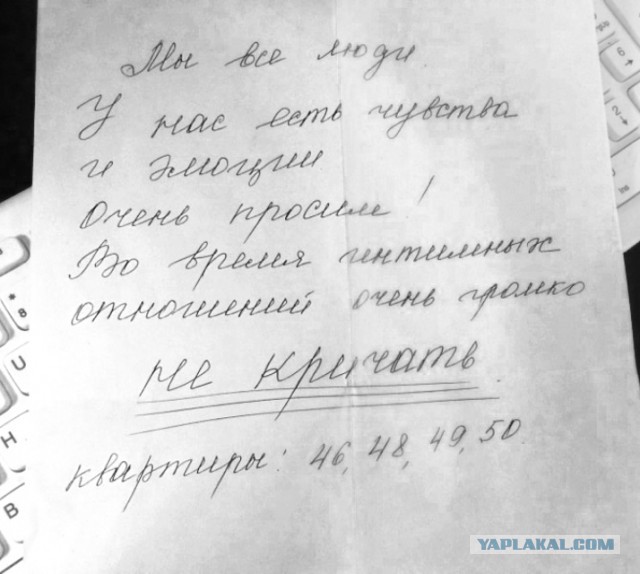 Мы все люди
У нас есть чувства
и эмоции
очень просим!
Во время интимных
отношений очень громко
не кричать
квартиры: 46, 48, 49, 50.
* 8
U
H
B
6
2
YAPLAKAL.COM